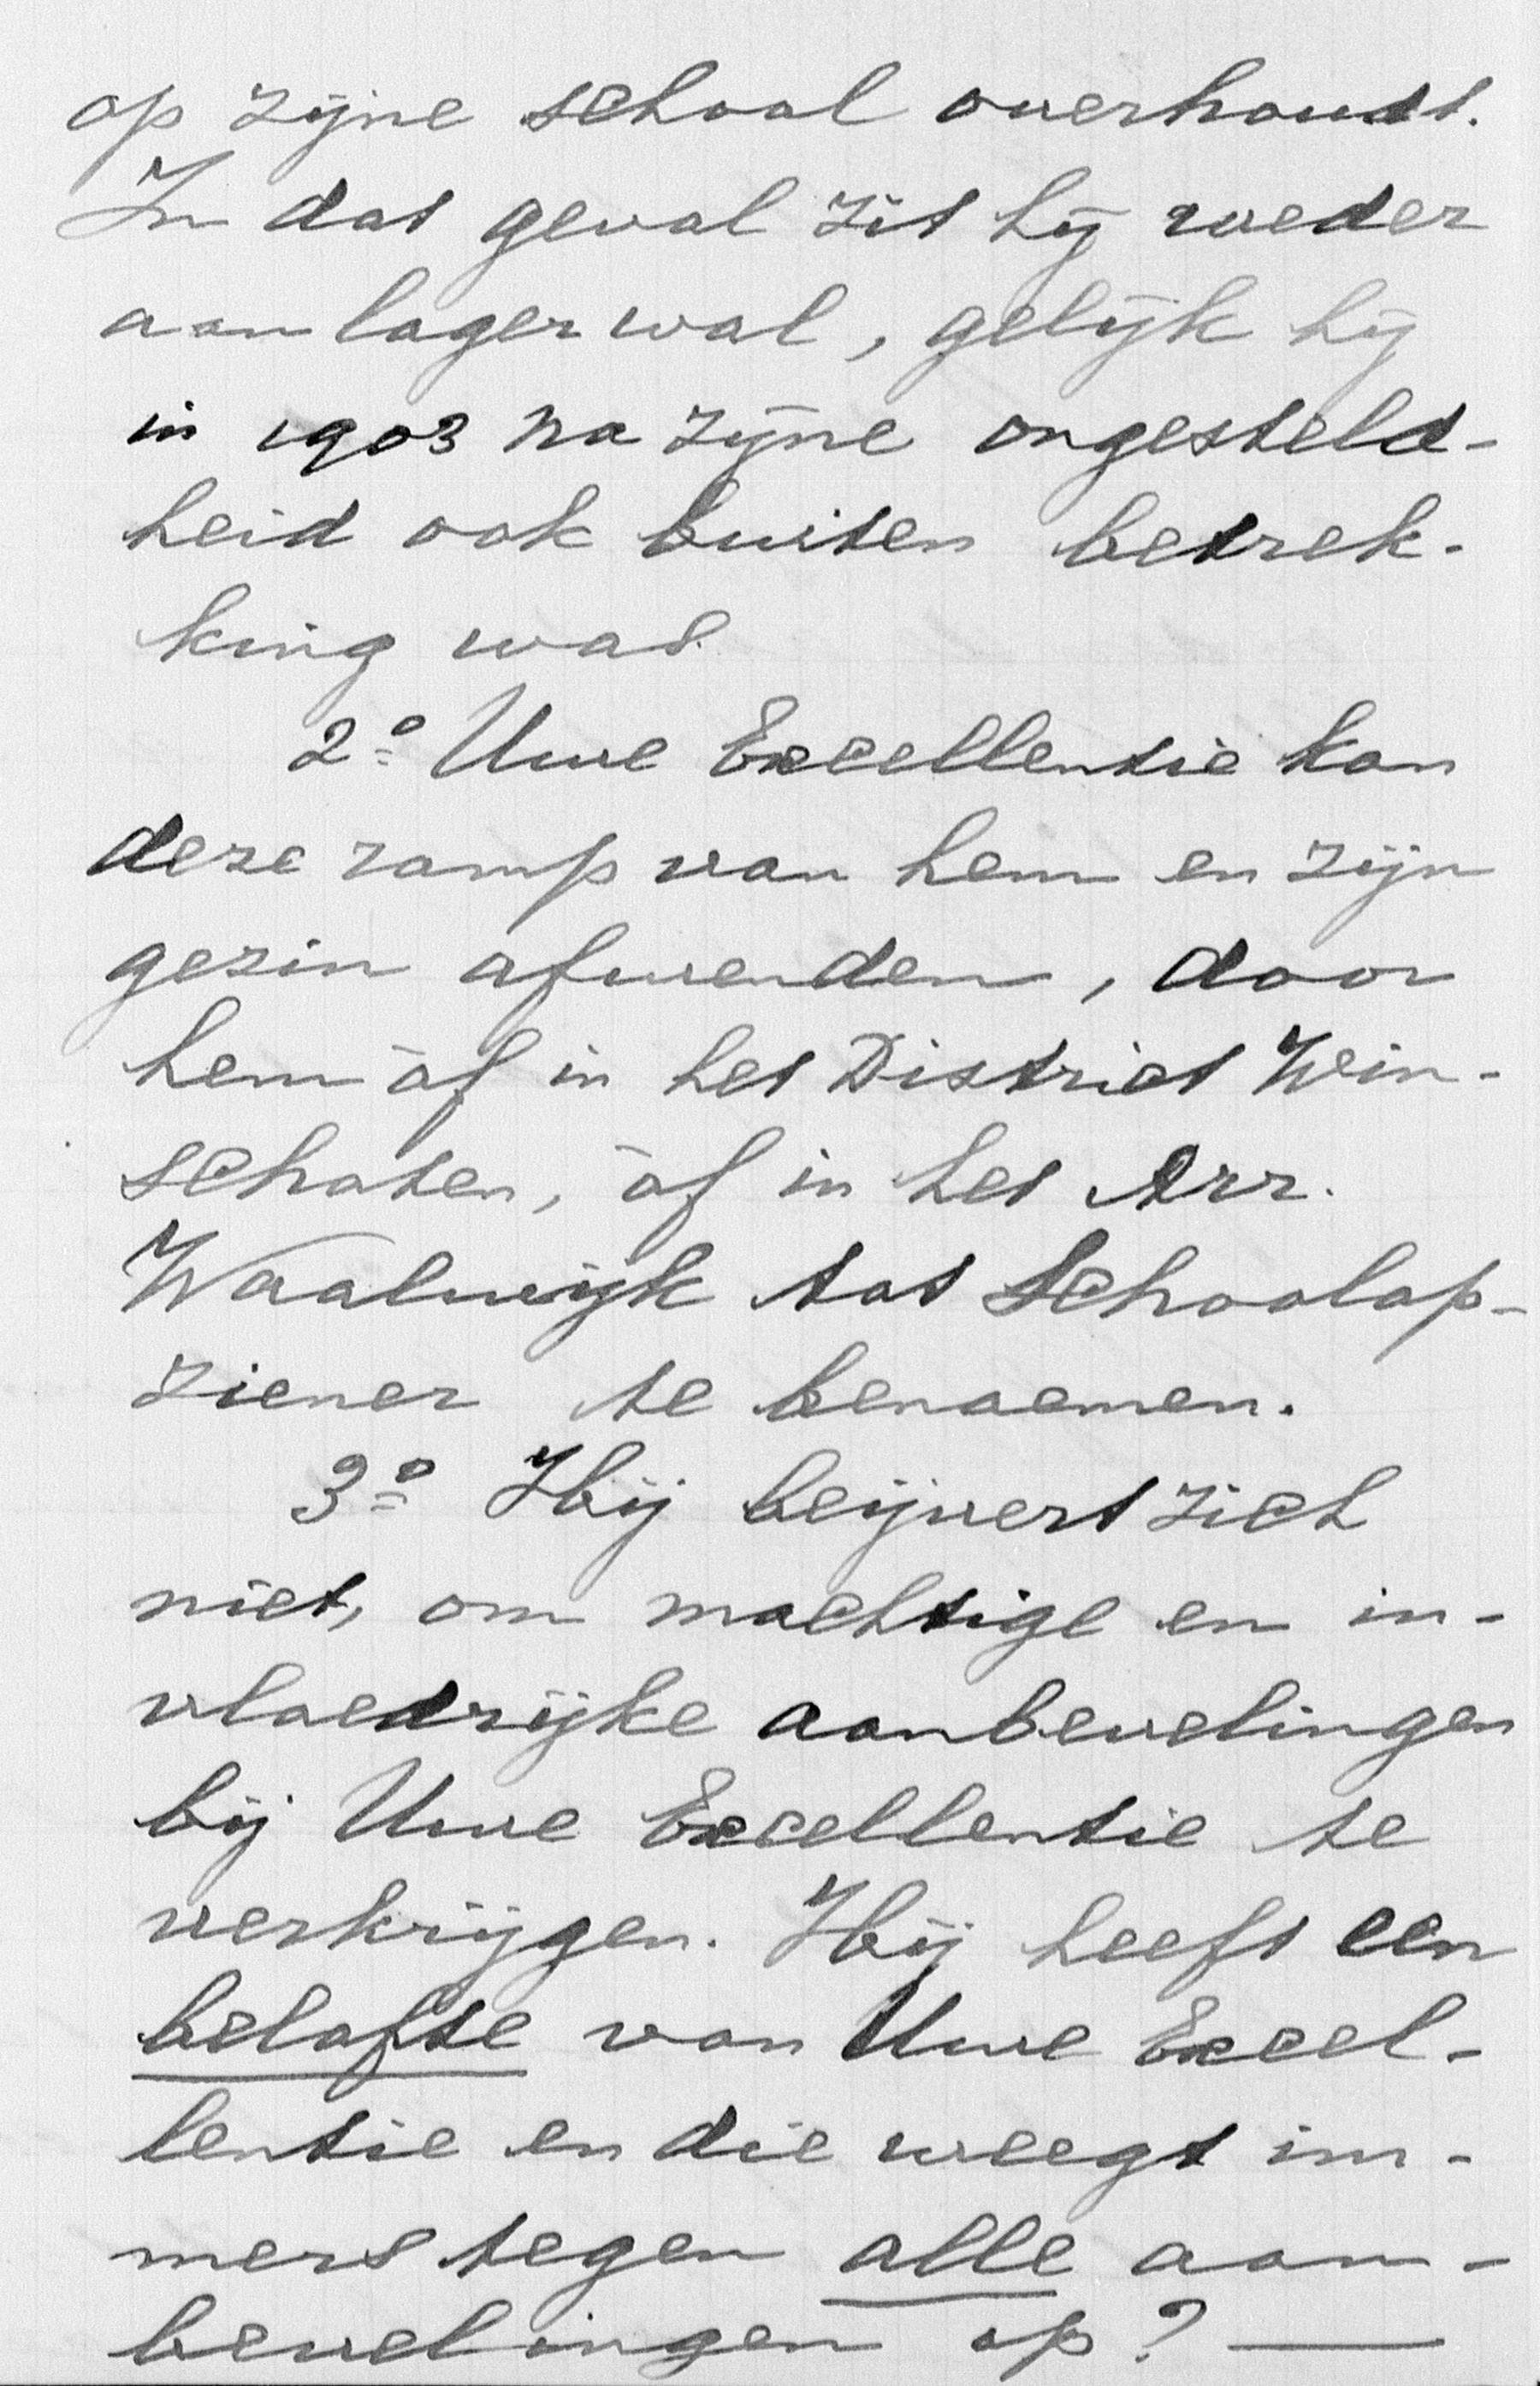 op zijne school overhoudt.
In dat geval zit hij weder
aan lager wal, gelijk hij
in 1903 na zijne ongesteld-
heid ook buiten betrek-
king was.
2º Uwe Excellentie kan
deze ramp van hem en zijn
gezin afwenden, door
hem òf in het District Win-
schoten, òf in het Arr.
Waalwijk tot Schoolop-
ziener te benoemen.
3º Hij beijvert zich
niet, om machtige en in-
vloedrijke aanbevelingen
bij Uwe Excellentie te
verkrijgen. Hij heeft een
belofte van Uwe Excel-
lentie en die weegt im-
mers tegen alle aan-
bevelingen op? —